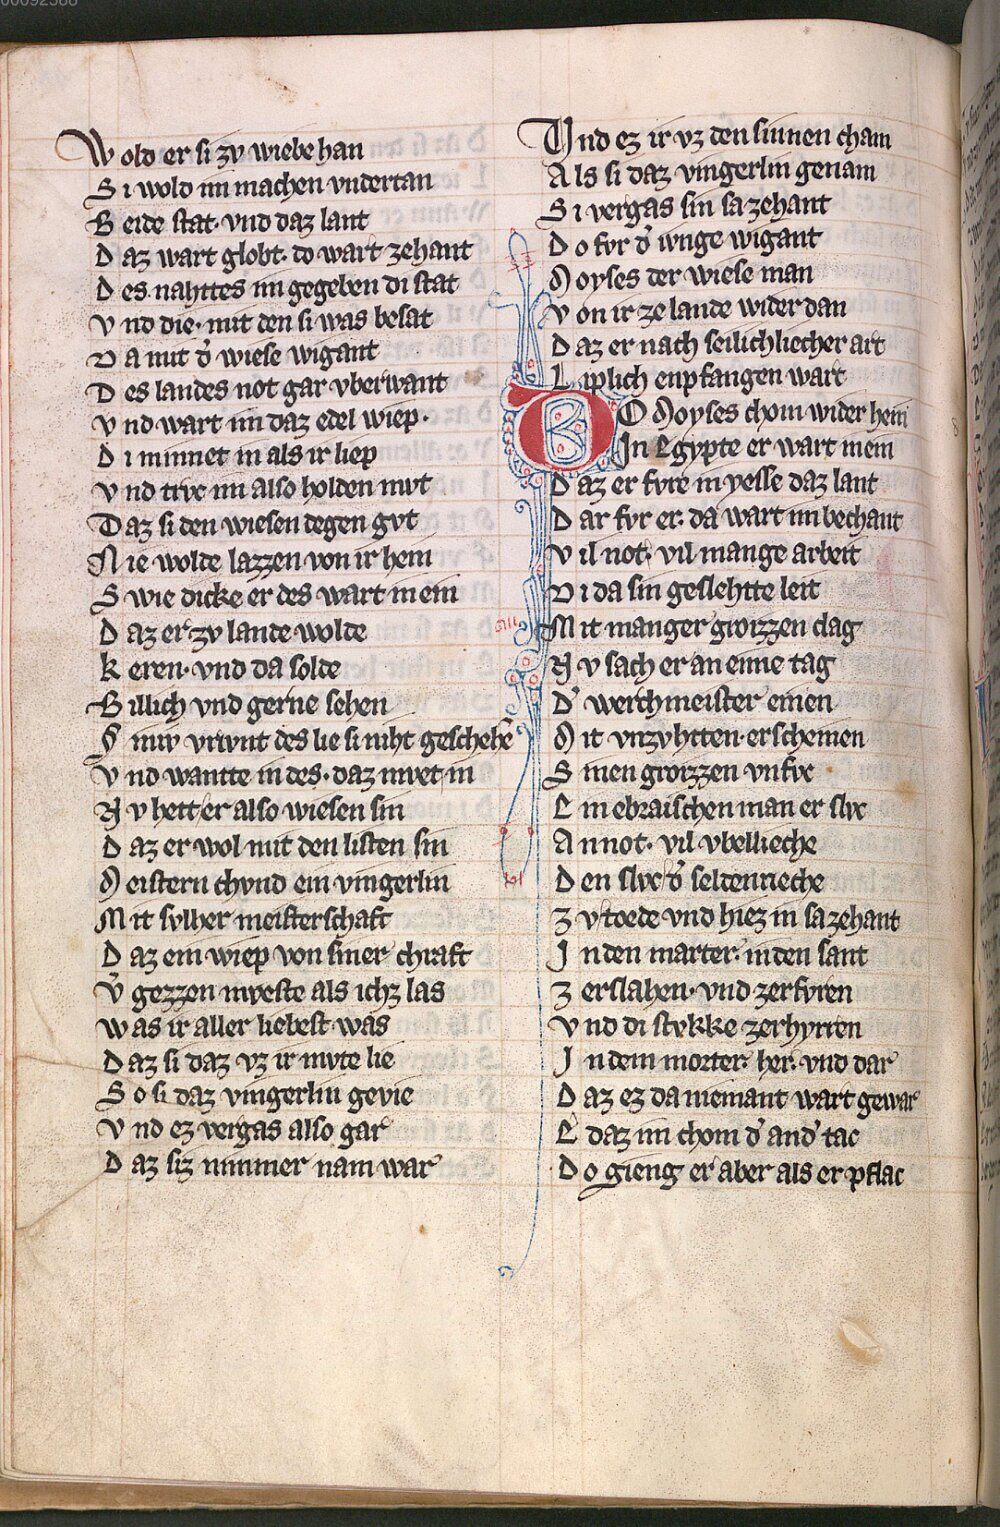 Wold er si zv wiebe han
Si wold im machen vndertan
Beide stat· vnd daz lant
Daz wart globt· do wart zehant
Des nahttes im gegeben di stat
Vnd die· mit den si was besat
Da mit d᾽ wiese wigant
Des landes not gar vberwant
Vnd wart im daz edel wiep·
Di minnet in als ir liep
Vnd trvc im also holden mvt
Daz si den wiesen degen gvt
Nie wolde lazzen von ir hein
Swie dicke er des wart in ein
Daz er zv lande wolde
Keren· vnd da solde
Billich vnd gerne sehen
Siniv vrivnt des lie si niht geschehē
Vnd wantte in des· daz mvet in
Nv hett er also wiesen sin
Daz er wol mit den listen sin
Meistern chvnd ein vingerlin
Mit sylher meisterschaft
Daz ein wiep von siner chraft
V᾽gezzen mveste als ichz las
Was ir aller liebest was
Daz si daz vz ir mvte lie
So si daz vingerlin gevie
Vnd ez vergas also gar
Daz siz nimmer nam war
Vnd ez ir vz den sinnen cham
Als si daz vingerlin genam
Si vergas sin sa zehant
Do fvr d᾽ ivnge wigant
Moyses der wiese man
Von ir ze lande wider dan
Daz er nach seilichliecher art
Liplich enpfangen wart
DO Moyses chom wider hein
In Egypte er wart in ein
Daz er fvre in yesse daz lant
Dar fvr er· da wart im bechant
Vil not· vil mange arbeit
Di da sin geslehtte leit
Mit manger groizzen clag
Nv sach er an eime tag
D᾽ werchmeister einen
Mit vnzvhtten· erscheinen
Sinen groizzen vnfvc
Ein ebraischen man er slvc
An not· vil vbellieche
Den slvc d᾽ seldenrieche
Zv toede vnd hiez in sa zehant
In den marter· in den sant
Zerslahen· vnd zerfvren
Vnd di stvkke zerhvrren
In dem morter· her· vnd dar
Daz ez da niemant wart gewar
E daz im chom d᾽ and᾽ tac
Do gieng er aber als er pflac